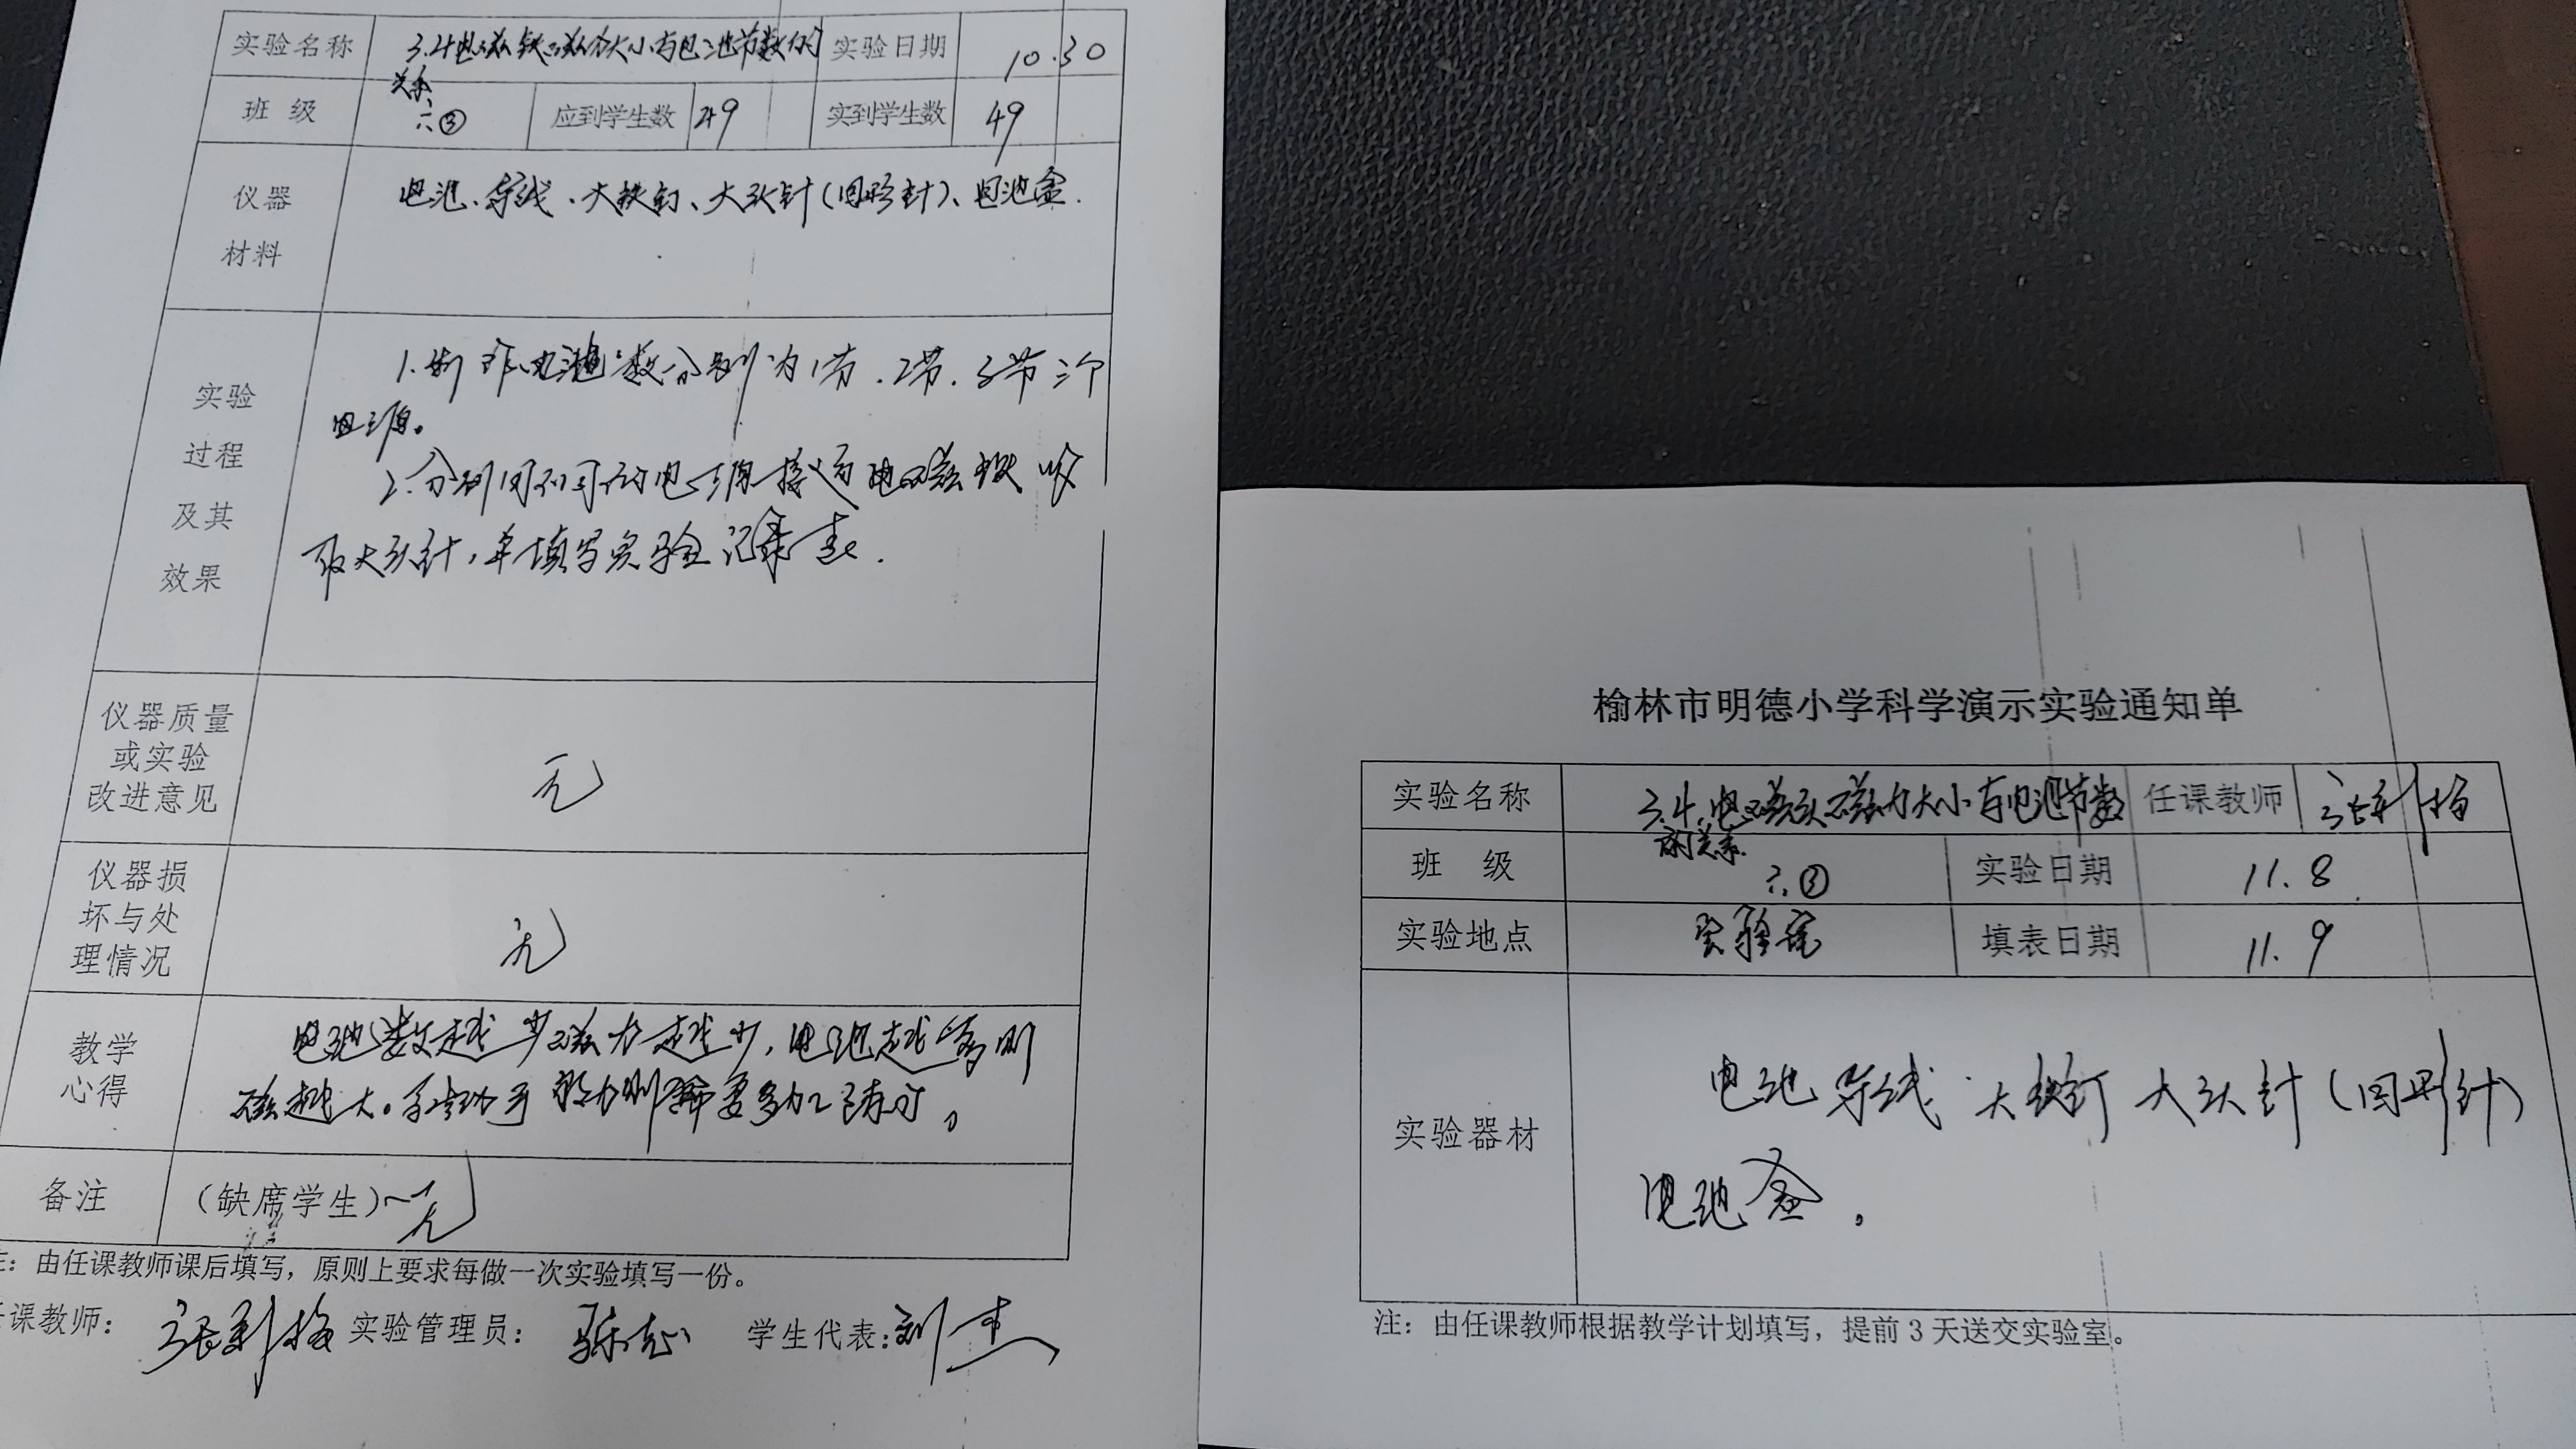 实验名称 3.4电磁铁磁力大小与电池节数的关系 实验日期 10.30
班 级 六③ 应到学生数 49 实到学生数 49
仪器材料 电池、导线、大铁钉、大头针(回形针)、电池盒.
实验过程及其效果
1.制作电池数分别为1节.2节.3节三个
电源。
2.分别用不同的电源接通电磁铁吸
取大头针,并填写实验记录表.
仪器质量或实验改进意见 无
仪器损坏与处理情况 无
教学心得
电池数越少磁力越小,电池越多则
磁越大。
备注 (缺席学生) 无
注:由任课教师课后填写,原则上要求每做一次实验填写一份。
任课教师: 实验管理员: 学生代表:刘杰
榆林市明德小学科学演示实验通知单
实验名称 3.4.电磁铁磁力大小与电池节数的关系. 任课教师
班 级 六.③ 实验日期 11.8
实验地点 实验室 填表日期 11.9
实验器材
电池 导线 大铁钉 大头针(回形针)
电池盒。
注:由任课教师根据教学计划填写,提前3天送交实验室。